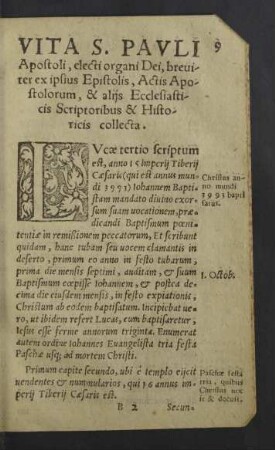 VITA S. PAVLI 9
Apostoli, electi organi Dei, breui-
ter ex ipsius Epistolis, Actis Apo-
stolorum, & alijs Ecclesiasti-
cis Scriptoribus & Histo-
ricis collecta.
LVcæ tertio scriptum
est, anno 15 Imperij Tiberij
Cæsaris (qui est annus mun-
di 3991) Iohannem Bapti-
stam mandato diuino exor-
sum suam vocationem, præ-
dicandi Baptismum pœni-
tentiæ in remißionem peccatorum, Et scribunt
quidam, hanc tubam seu vocem clamantis in
deserto, primum eo anno in festo tubarum,
prima die mensis septimi, auditam, & suum
Baptismum cœpisse Iohannem, & postea de-
cima die eiusdem mensis, in festo expiationis,
Christum ab eodem baptisatum. Incipiebat ve-
ro, ut ibidem refert Lucas, cum baptisaretur,
Iesus esse ferme annorum triginta. Enumerat
autem ordine Iohannes Euangelista tria festa
Paschæ usq; ad mortem Christi.
Primum capite secundo, ubi è templo ejicit
uendentes & nummularios, qui 16 annus im-
perij Tiberij Cæsaris est.
B 2 Secun-
Christus an-
no mundi
3991 bapti
satus.
1. Octob.
Paschæ festa
tria, quibus
Christus
& docuit.